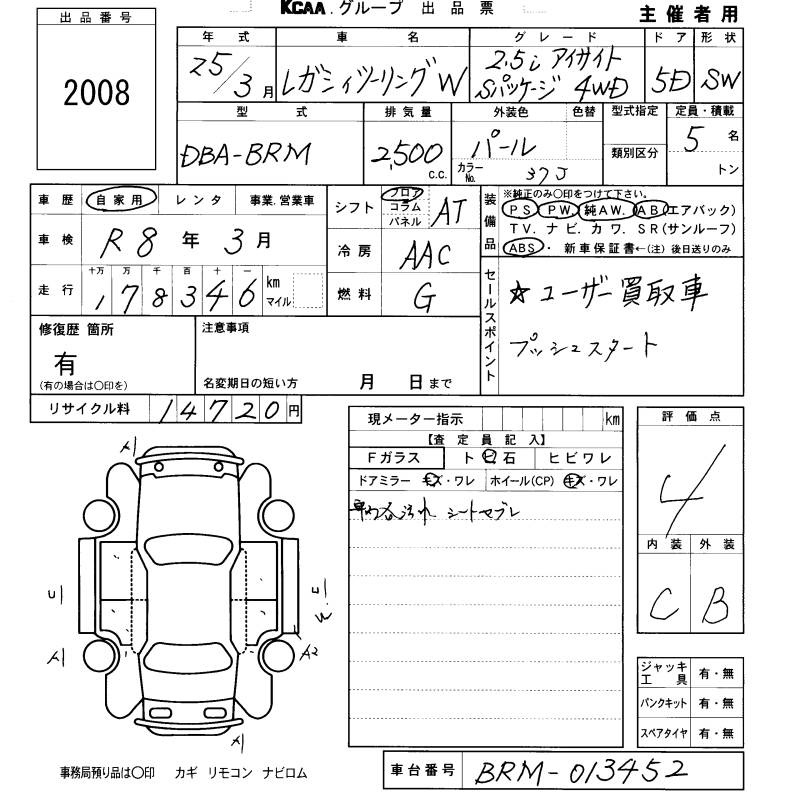 KCAA.グループ 出品票
主催者用
出品番号
2008
年式 車名 グレード ドア 形状
25/3月 レガシィツーリングW 2.5i アイサイト Sパッケージ 4WD 5D SW
型式 排気量 外装色 色替 型式指定 定員・積載
DBA-BRM 2,500 c.c. パール カラーNo. 37J 類別区分 5名 トン
車歴 自家用 レンタ 事業.営業車
車検 R8年 3月
走行 十万 万 千 百 十 一 km マイル
178346
シフト フロア コラム パネル AT
冷房 AAC
燃料 G
装備品 ※純正のみ〇印をつけて下さい。
PS PW 純AW. AB(エアバック)
TV. ナビ. カワ. SR(サンルーフ)
ABS・ 新車保証書←(注) 後日送りのみ
セールスポイント
☆ユーザー買取車
プッシュスタート
修復歴 箇所
有
(有の場合は〇印を)
注意事項
名変期日の短い方 月 日まで
リサイクル料 14720円
現メーター指示 km
【査定員記入】
Fガラス ト ビ 石 ヒビワレ
ドアミラー キズ・ワレ ホイール(CP) キズ・ワレ
車内汚れ シート
評価点
4
内装 外装
C B
ジャッキ工具 有・無
パンクキット 有・無
スペアタイヤ 有・無
A
U
U
A
A2
A
事務局預り品は〇印 カギ リモコン ナビロム
車台番号 BRM-013452